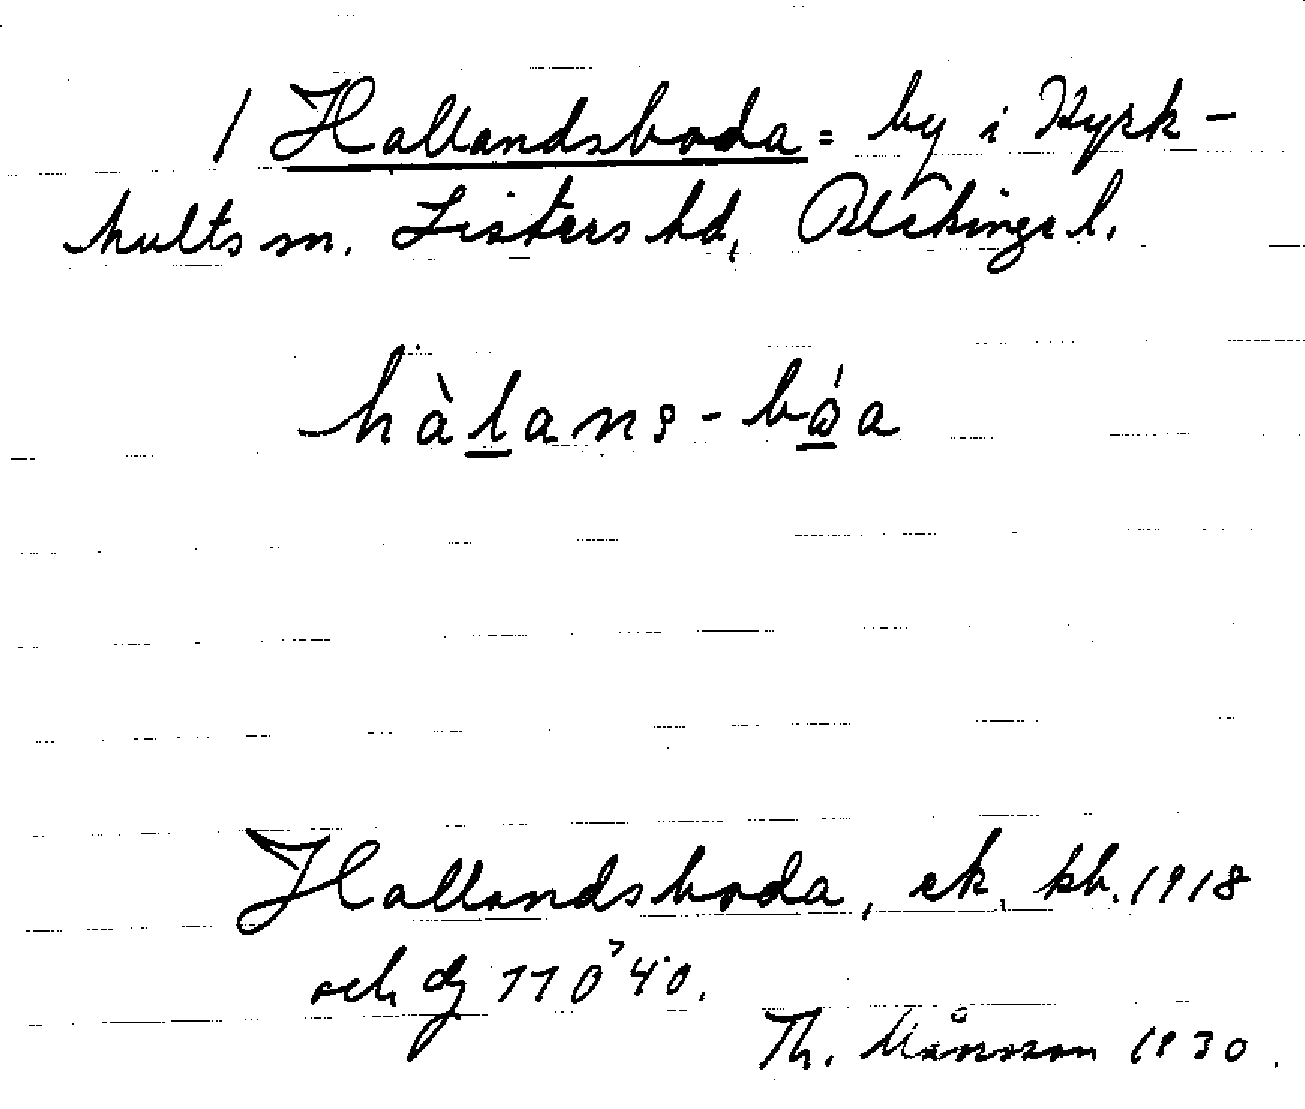 1 Hallandsboda = by i Kyrk-
hults sn. Listers hd, Blekinge l.
hàlans-bóa
Hallandsboda, ek, kb. 1918
och dj 110 40.
Th. Månsson 1930.